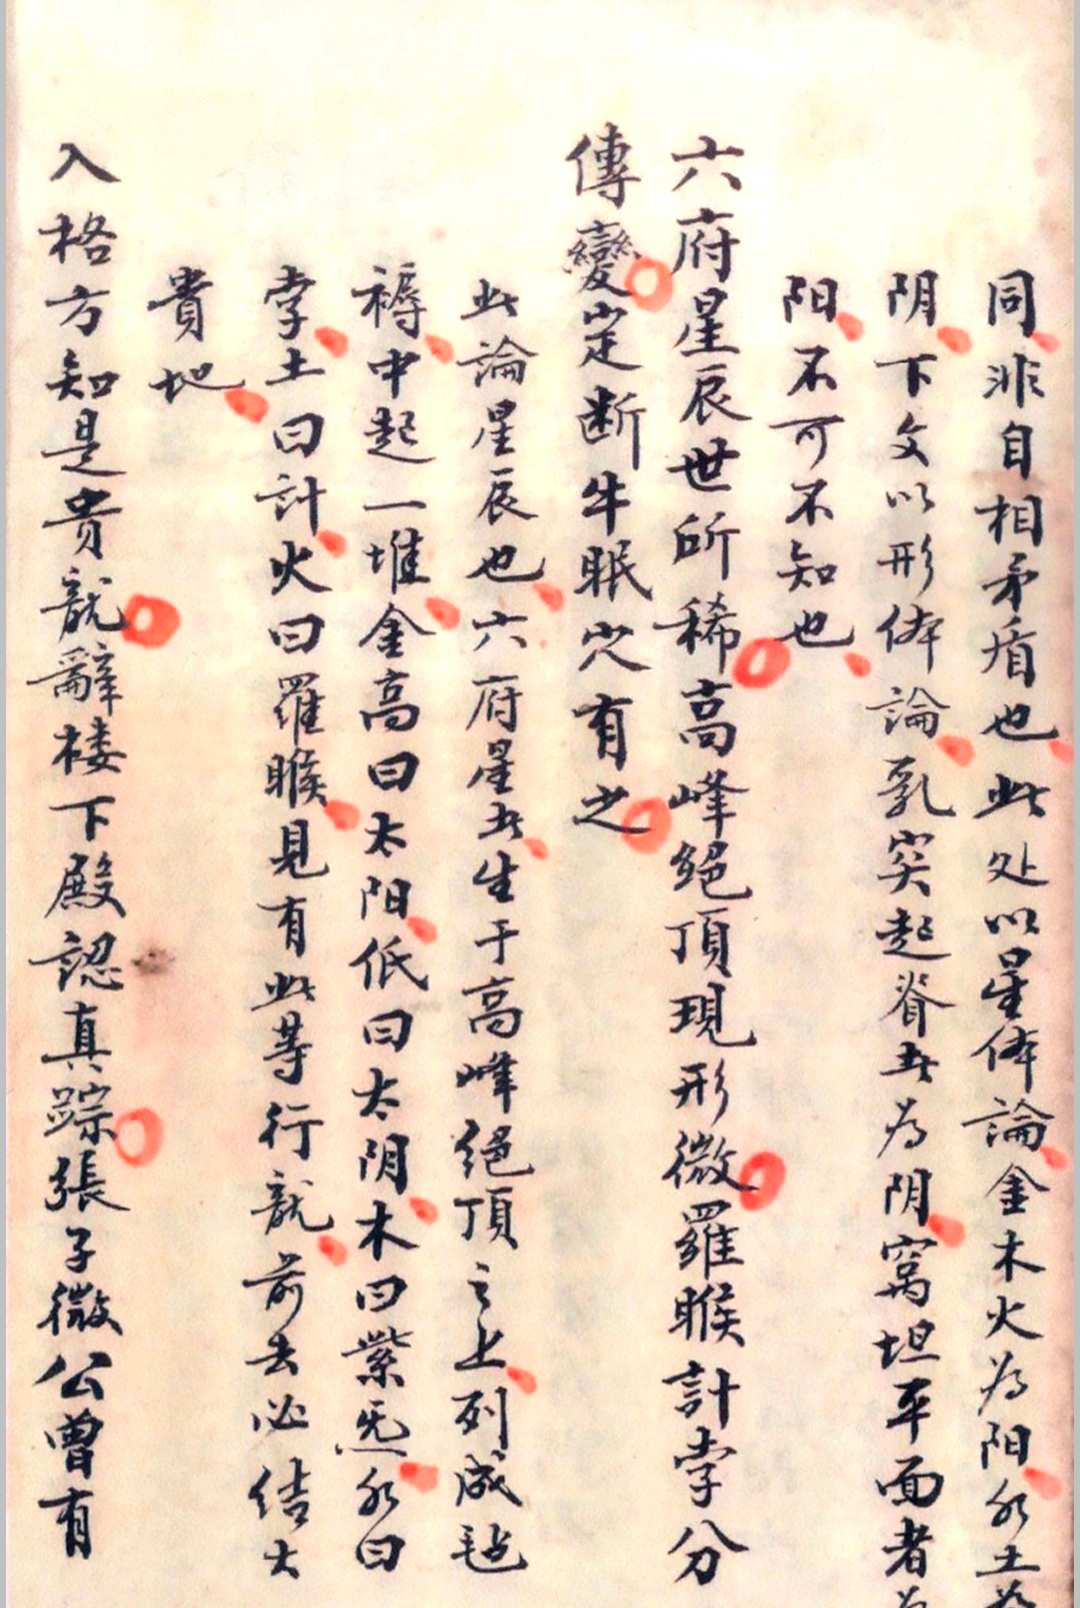 同非自相矛盾也此处以星体論金木火为阳水土為
阴下文以形体論乳突起脊者为阴窝坦平面者為
阳不可不知也
六府星辰世所稀高峰絕頂現形微羅睺計孛分
傳變定断牛眠穴有之
此論星辰也六府星者生于高峰絕頂之上列成毡
褥中起一堆金高曰太阳低曰太阴木曰紫炁水曰
孛土曰計火曰羅睺見有此等行龍前去必结大
貴地
入格方知是贵龍辭楼下殿認真踪張子微公曾有